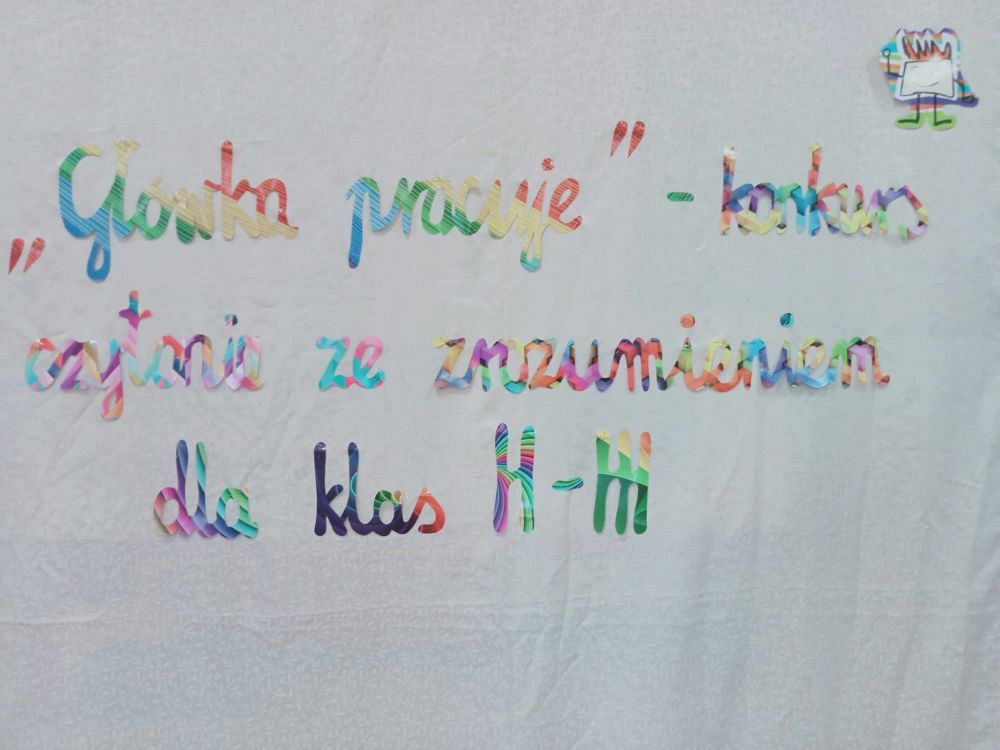 „Główka pracuje" - konkurs
czytania ze zrozumieniem
dla klas II-III